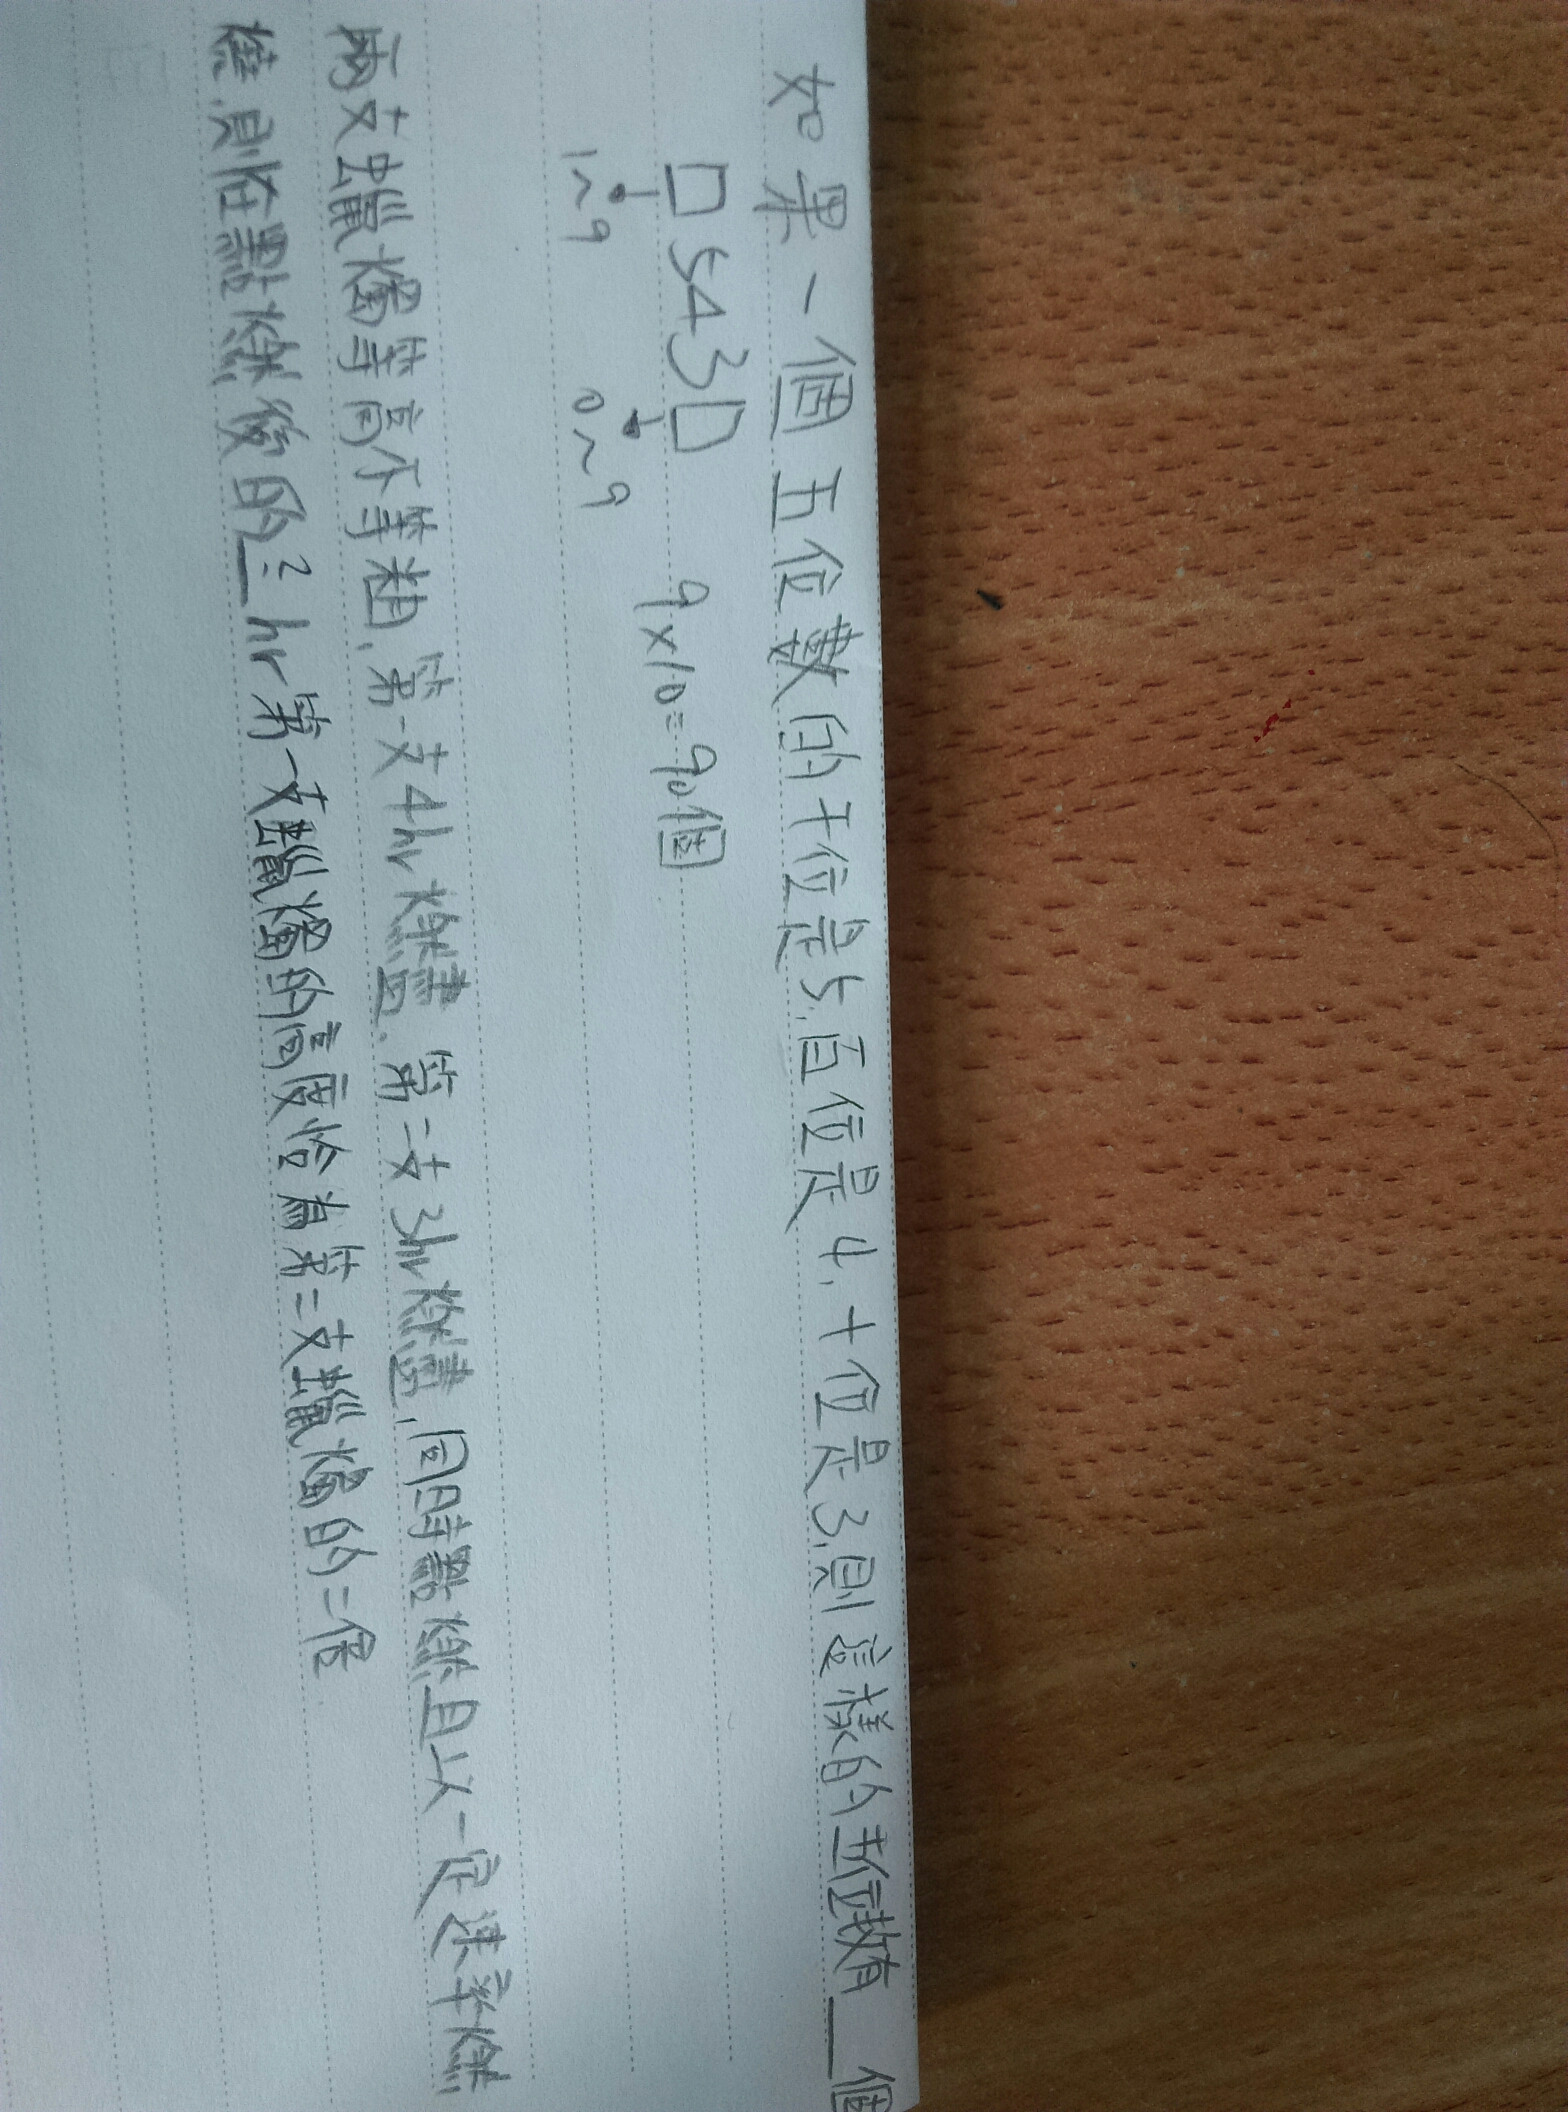 如果一個五位數的千位是5,百位是4,十位是3,則這樣的五位數有__個
□543□ 9×10=90個
1~9 0~9
兩支蠟燭等高不等粗,第一支4hr燃盡,第二支3hr燃盡,同時點燃且以一定速率燃
燒,則在點燃後的__?hr第一支蠟燭的高度恰為第二支蠟燭的二倍